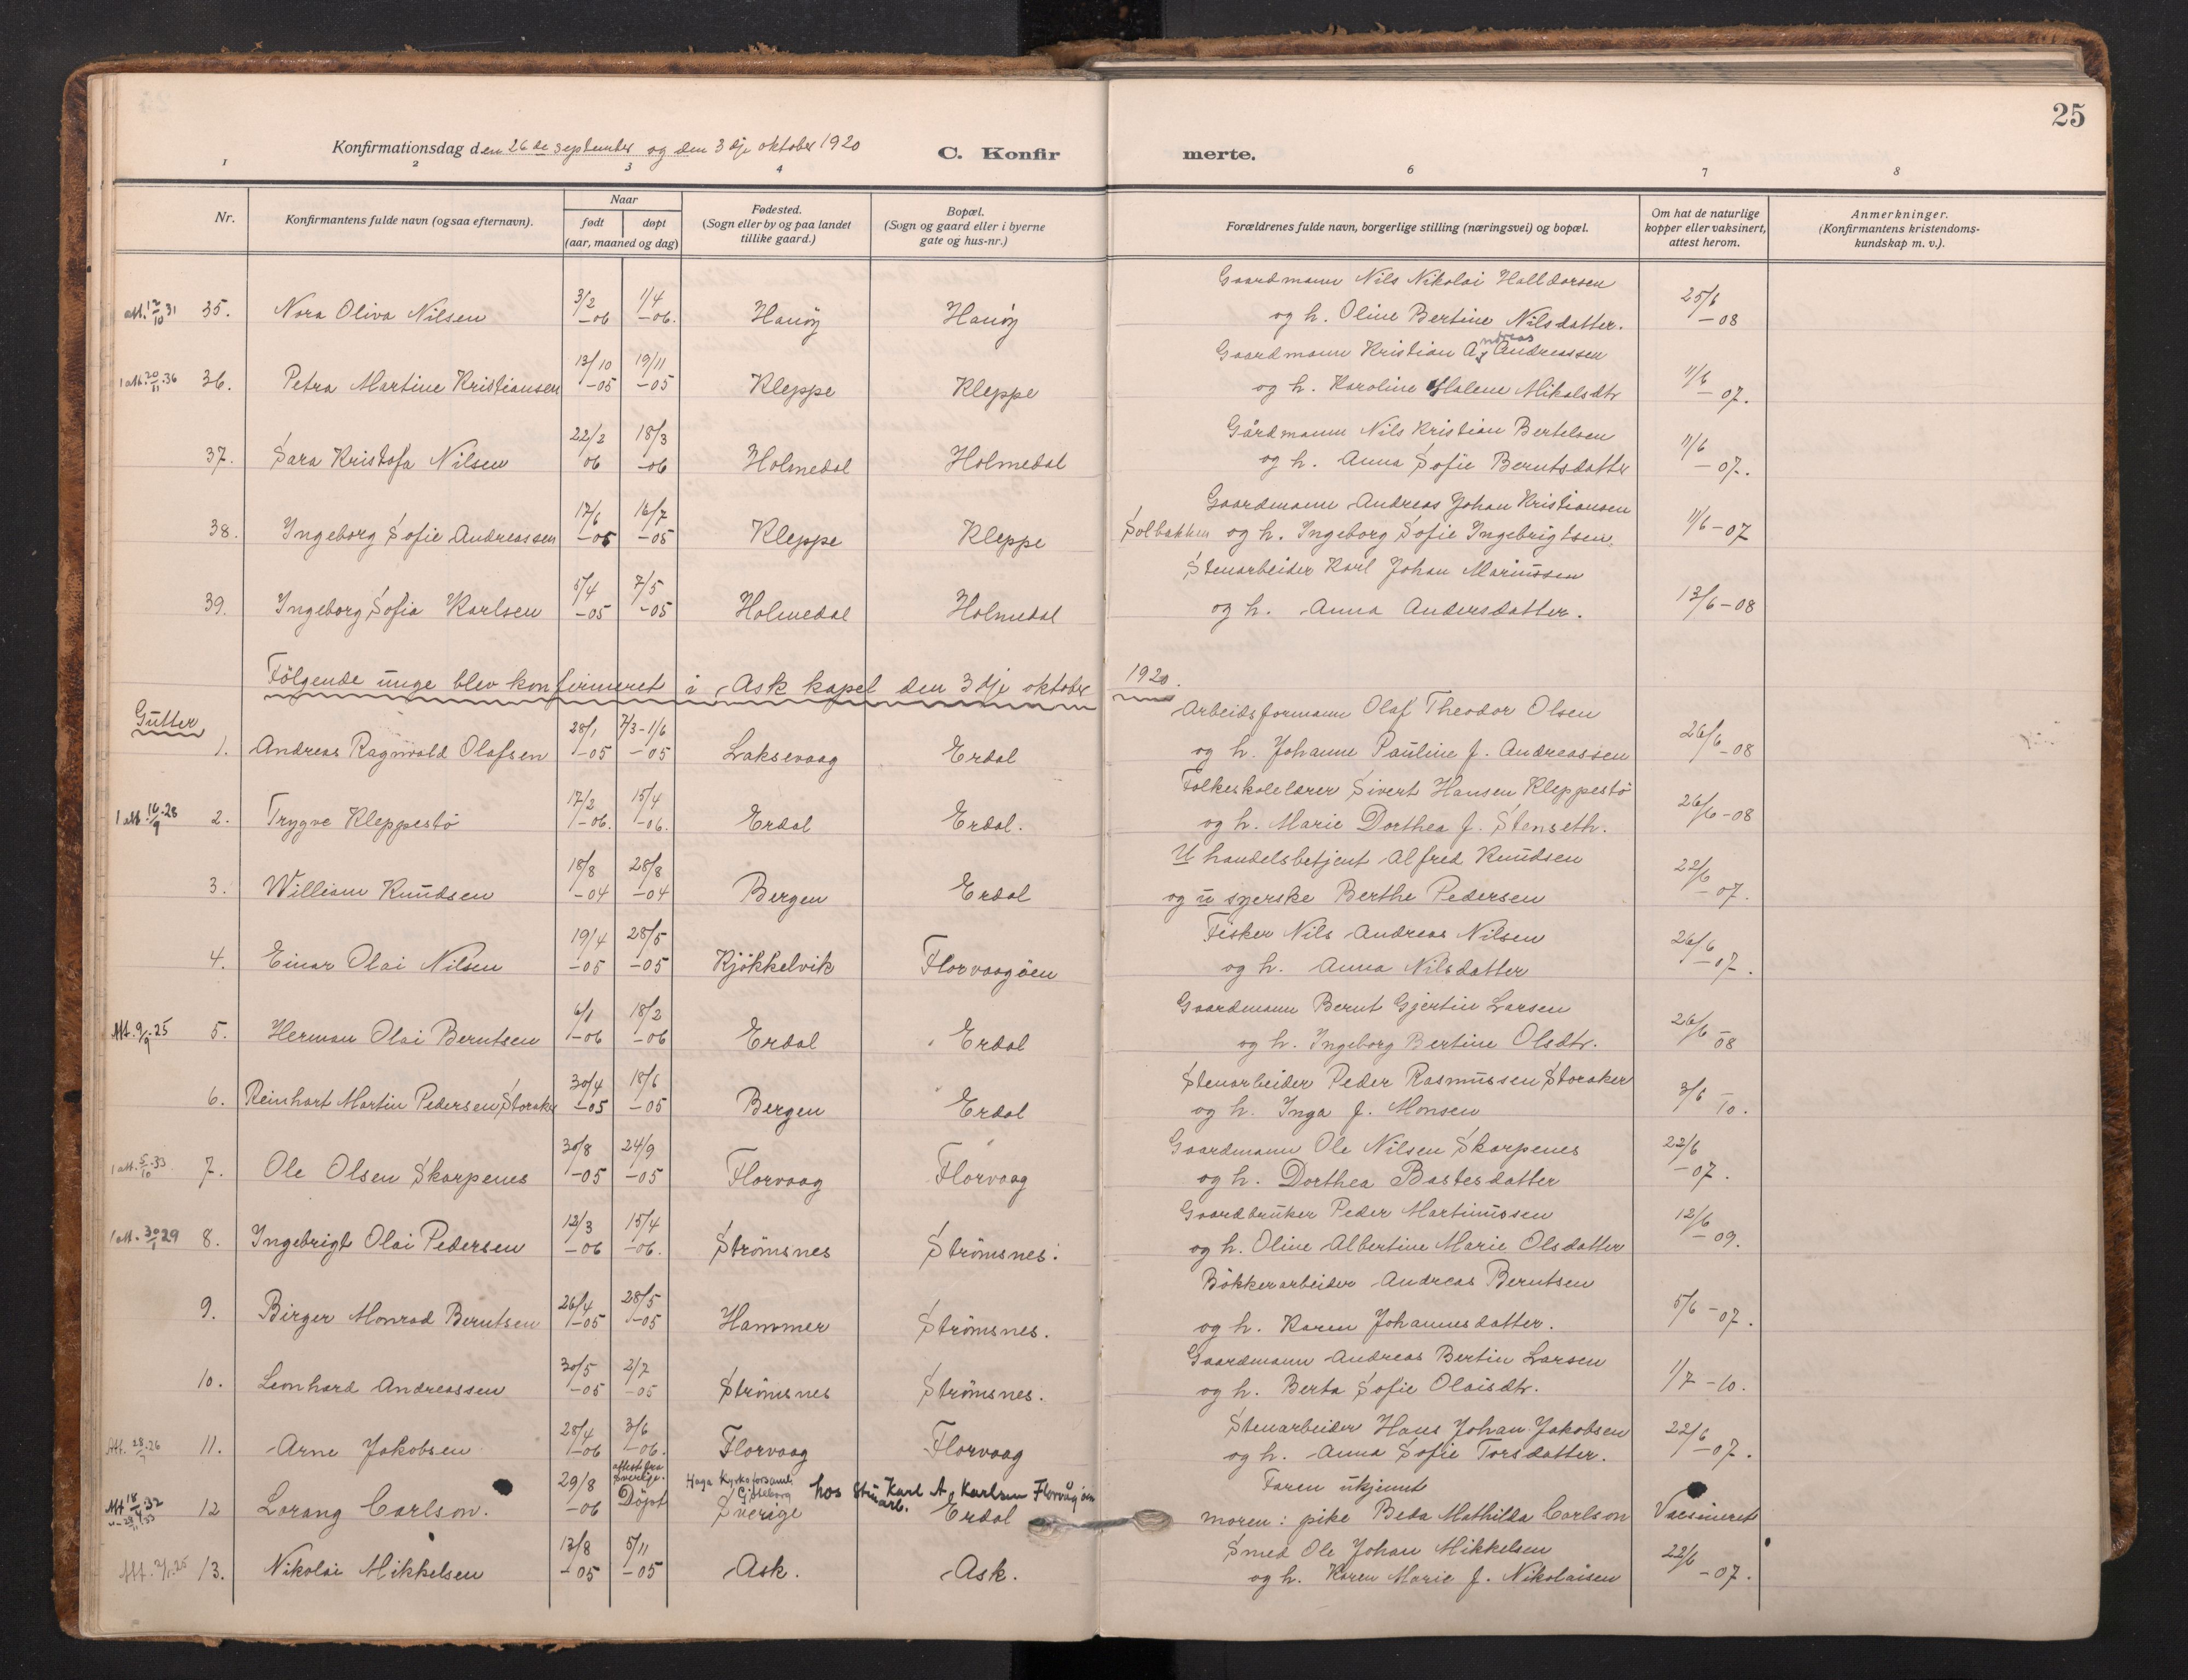 25
Konfirmationsdag den 26de september og den 3dje oktober 1920 C. Konfirmerte.
1 2 3 4 6 7 8
Nr.
Konfirmantens fulde navn (ogsaa efternavn).
Naar
født døpt
(aar, maaned og dag)
Fødested.
(Sogn eller by og paa landet
tillike gaard.)
Bopæl.
(Sogn og gaard eller i byerne
gate og hus-nr.)
Forældrenes fulde navn, borgerlige stilling (næringsvei) og bopæl.
Om hat de naturlige
kopper eller vaksinert,
attest herom.
Anmerkninger.
(Konfirmantens kristendoms-
kundskap m. v.).
Gaardmann Nils Nikolai Halldorsen
att. 12/10 31 35. Nora Oliva Nilsen 3/2 -06 1/4 -06. Hanöy Hanöy og h. Oline Bertine Nilsdatter. 25/6 -08
Gaardmann Kristian Andreas Andreassen
1 att. 20/11 36 36. Petra Martine Kristiansen 13/10 -05 19/11 -05 Kleppe Kleppe og h. Karoline Malene Mikalsdtr 11/6 -07.
Gårdmann Nils Kristian Bertelsen
37. Sara Kristofa Nilsen 22/2 06 18/3 -06 Holmedal Holmedal og h. Anna Sofie Berntsdatter 11/6 -07.
Gaardmann Andreas Johan Kristiansen
38. Ingeborg Sofie Andreassen 17/6 -05 16/7 -05 Kleppe Kleppe Solbakken og h. Ingeborg Sofie Ingebrigtsen. 11/6 -07
Stenarbeider Karl Johan Mariussen
39. Ingeborg Sofia Karlsen 5/4 -05 7/5 -05 Holmedal Holmedal og h. Anna Andersdatter. 13/6 -08
Følgende unge blev konfirmeret i Ask kapel den 3dje oktober 1920.
Gutter
Arbeidsformann Olaf Theodor Olsen
1. Andreas Ragnvald Olafsen 28/1 -05 7/3 - 1/6 -05 Laksevaag Erdal og h. Johanne Pauline f. Andreassen 26/6 -08
Folkeskolelærer Sivert Hansen Kleppestö
1 att. 16/9 28 2. Trygve Kleppestö 17/2 -06. 15/4 -06. Erdal Erdal. og h. Marie Dorthea f. Stenseth. 26/6 -08
U handelsbetjent Alfred Knudsen
3. William Knudsen 18/8 -04 28/8 -04 Bergen Erdal og u syerske Berthe Pedersen 22/6 -07.
Fisker Nils Andreas Nilsen
4. Einar Olai Nilsen 19/4 -05 28/5 -05 Kjökkelvik Florvaagöen og h. Anna Nilsdatter 26/6 -07.
Gaardmann Bernt Gjertin Larsen
Att. 9/9 25 5. Herman Olai Berntsen 6/1 -06 18/2 -06 Erdal Erdal og h. Ingeborg Bertine Olsdtr. 26/6 -08
Stenarbeider Peder Rasmussen Storaker
6. Reinhart Martin Pedersen Storaker 30/4 -05 18/6 -05 Bergen Erdal og h. Inga f. Monsen 3/6 -10.
Gaardmann Ole Nilsen Skarpenes
1 att. 5/10 33 7. Ole Olsen Skarpenes 30/8 -05 24/9 -05 Florvaag Florvaag og h. Dorthea Bastesdatter 22/6 -07.
Gaardbruker Peder Martinussen
1 att. 30/1 29 8. Ingebrigt Olai Pedersen 12/3 -06 15/4 -06. Strömsnes Strömsnes. og h. Oline Albertine Marie Olsdatter 12/6 -09.
Bökkerarbeider Andreas Berntsen
9. Birger Monrad Berntsen 26/4 -05 28/5 -05 Hammer Strömsnes. og h. Karen Johannesdatter. 5/6 -07.
Gaardmann Andreas Bertin Larsen
10. Leonhard Andreassen 30/5 -05 2/7 -05 Strömsnes Strömsnes. og h. Berta Sofie Olaisdtr. 1/7 -10.
Stenarbeider Hans Johan Jakobsen
Att. 28/ 26 11. Arne Jakobsen 28/4 -06 3/6 -06. Florvaag Florvaag og h. Anna Sofie Torsdatter. 22/6 -07.
attest fra Sverige. Haga Kyrkoforsaml. Göteborg hos Stenarb. Karl A. Karlsen Florvågöen Faren ukjennt
Att 18/ 32 12 Lorang Carlson. 29/8 -06 Döpt Sverige Erdal moren: pike Beda Mathilda Carlson Vacsineret
Smed Ole Johan Mikkelsen
Att. 2/1 25 13. Nikolai Mikkelsen 13/8 -05 5/11 -05 Ask. Ask. og h. Karen Marie f. Nikolaisen 22/6 -07.